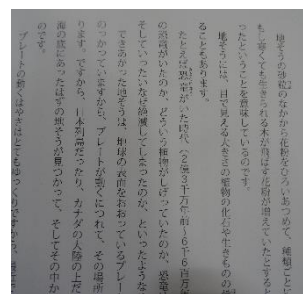 地そうの砂粒のなかから花粉をひろいあつめて、種類ごと
もし寒くても生きられる木が飛ばす花粉が増えていたとすると
ったということを意味しているのです。
地そうには、目で見える大きさの植物の化石や生きものの
ることもあります。
たとえば恐竜がいた時代(2億3千万年前〜6千6百万年
の恐竜がいたのか、どういう植物がしげっていたのか、恐竜
そしていったいなぜ絶滅してしまったのか、といったような
てきあがった地そうは、地球の表面をおおっているプレー
のっかっていますから、プレートが動くにつれて、その場所
ります。ですから、日本列島だったり、カナダの大陸の上だ
海の底にあったはずの地そうが見つかって、そしてその中か
のです。
プレートの動くはやさはとてもゆっくりですから、